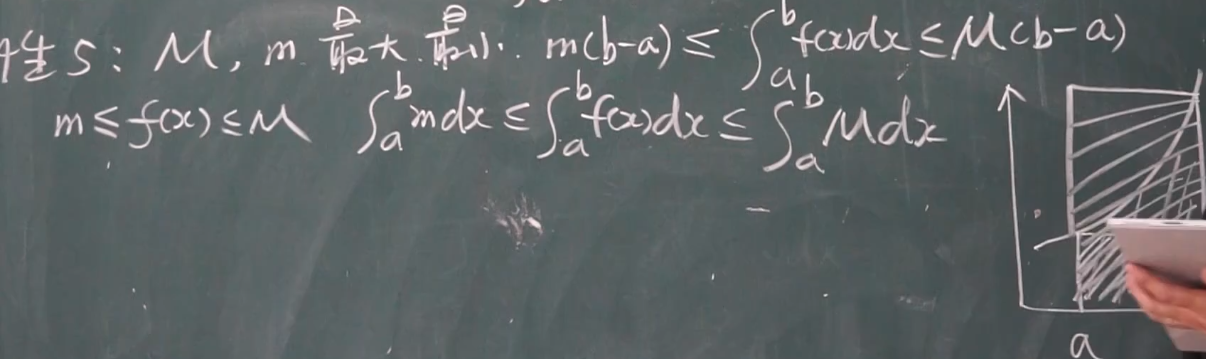 性5: M, m 最大.最小. m(b-a) ≤ ∫ₐᵇ f(x)dx ≤ M(b-a)
m ≤ f(x) ≤ M ∫ₐᵇ mdx ≤ ∫ₐᵇ f(x)dx ≤ ∫ₐᵇ Mdx
a